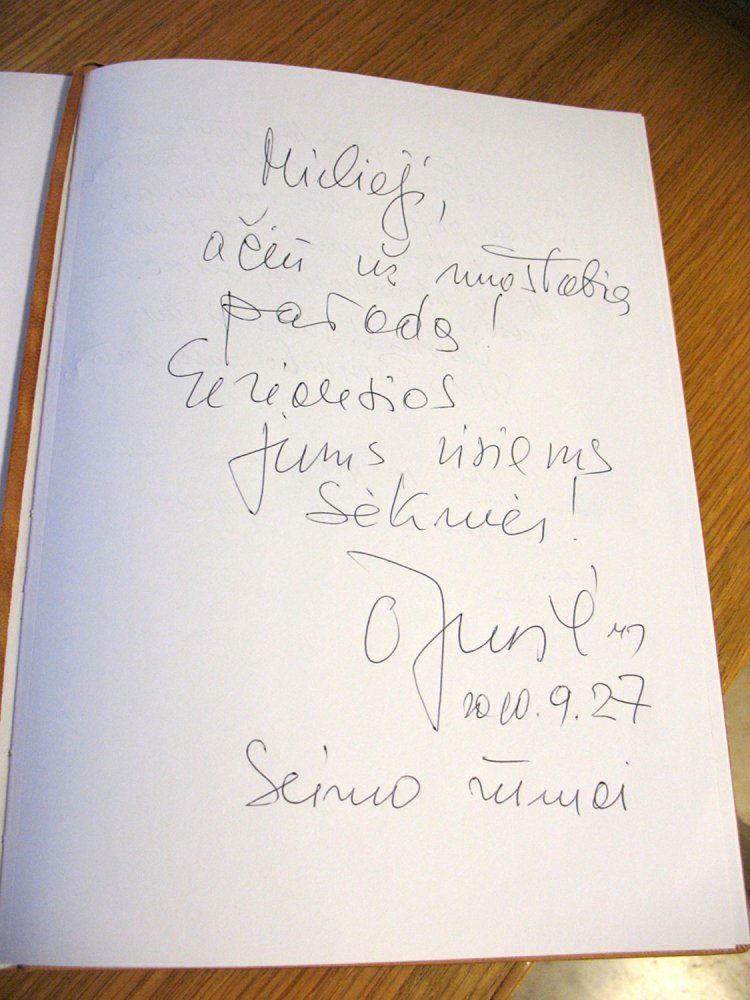 Mielieji,
ačiū už nuostabią
parodą!
Geriausios
jums visiems
sėkmės!
2010.9.27
Seimo rūmai